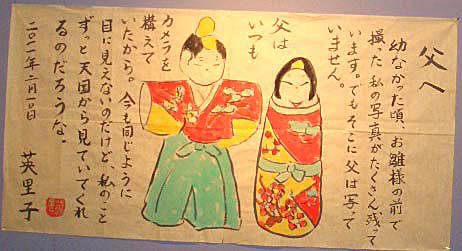 父へ
幼なかった頃、お雛様の前で
撮った私の写真がたくさん残って
います。でもそこに父は写って
いません。
父は
いつも
カメラを
構えて
いたから。今も同じように
目に見えないのだけど、私のこと
ずっと天国から見ていてくれ
るのだろうな。
二〇一一年二月二〇日
英里子